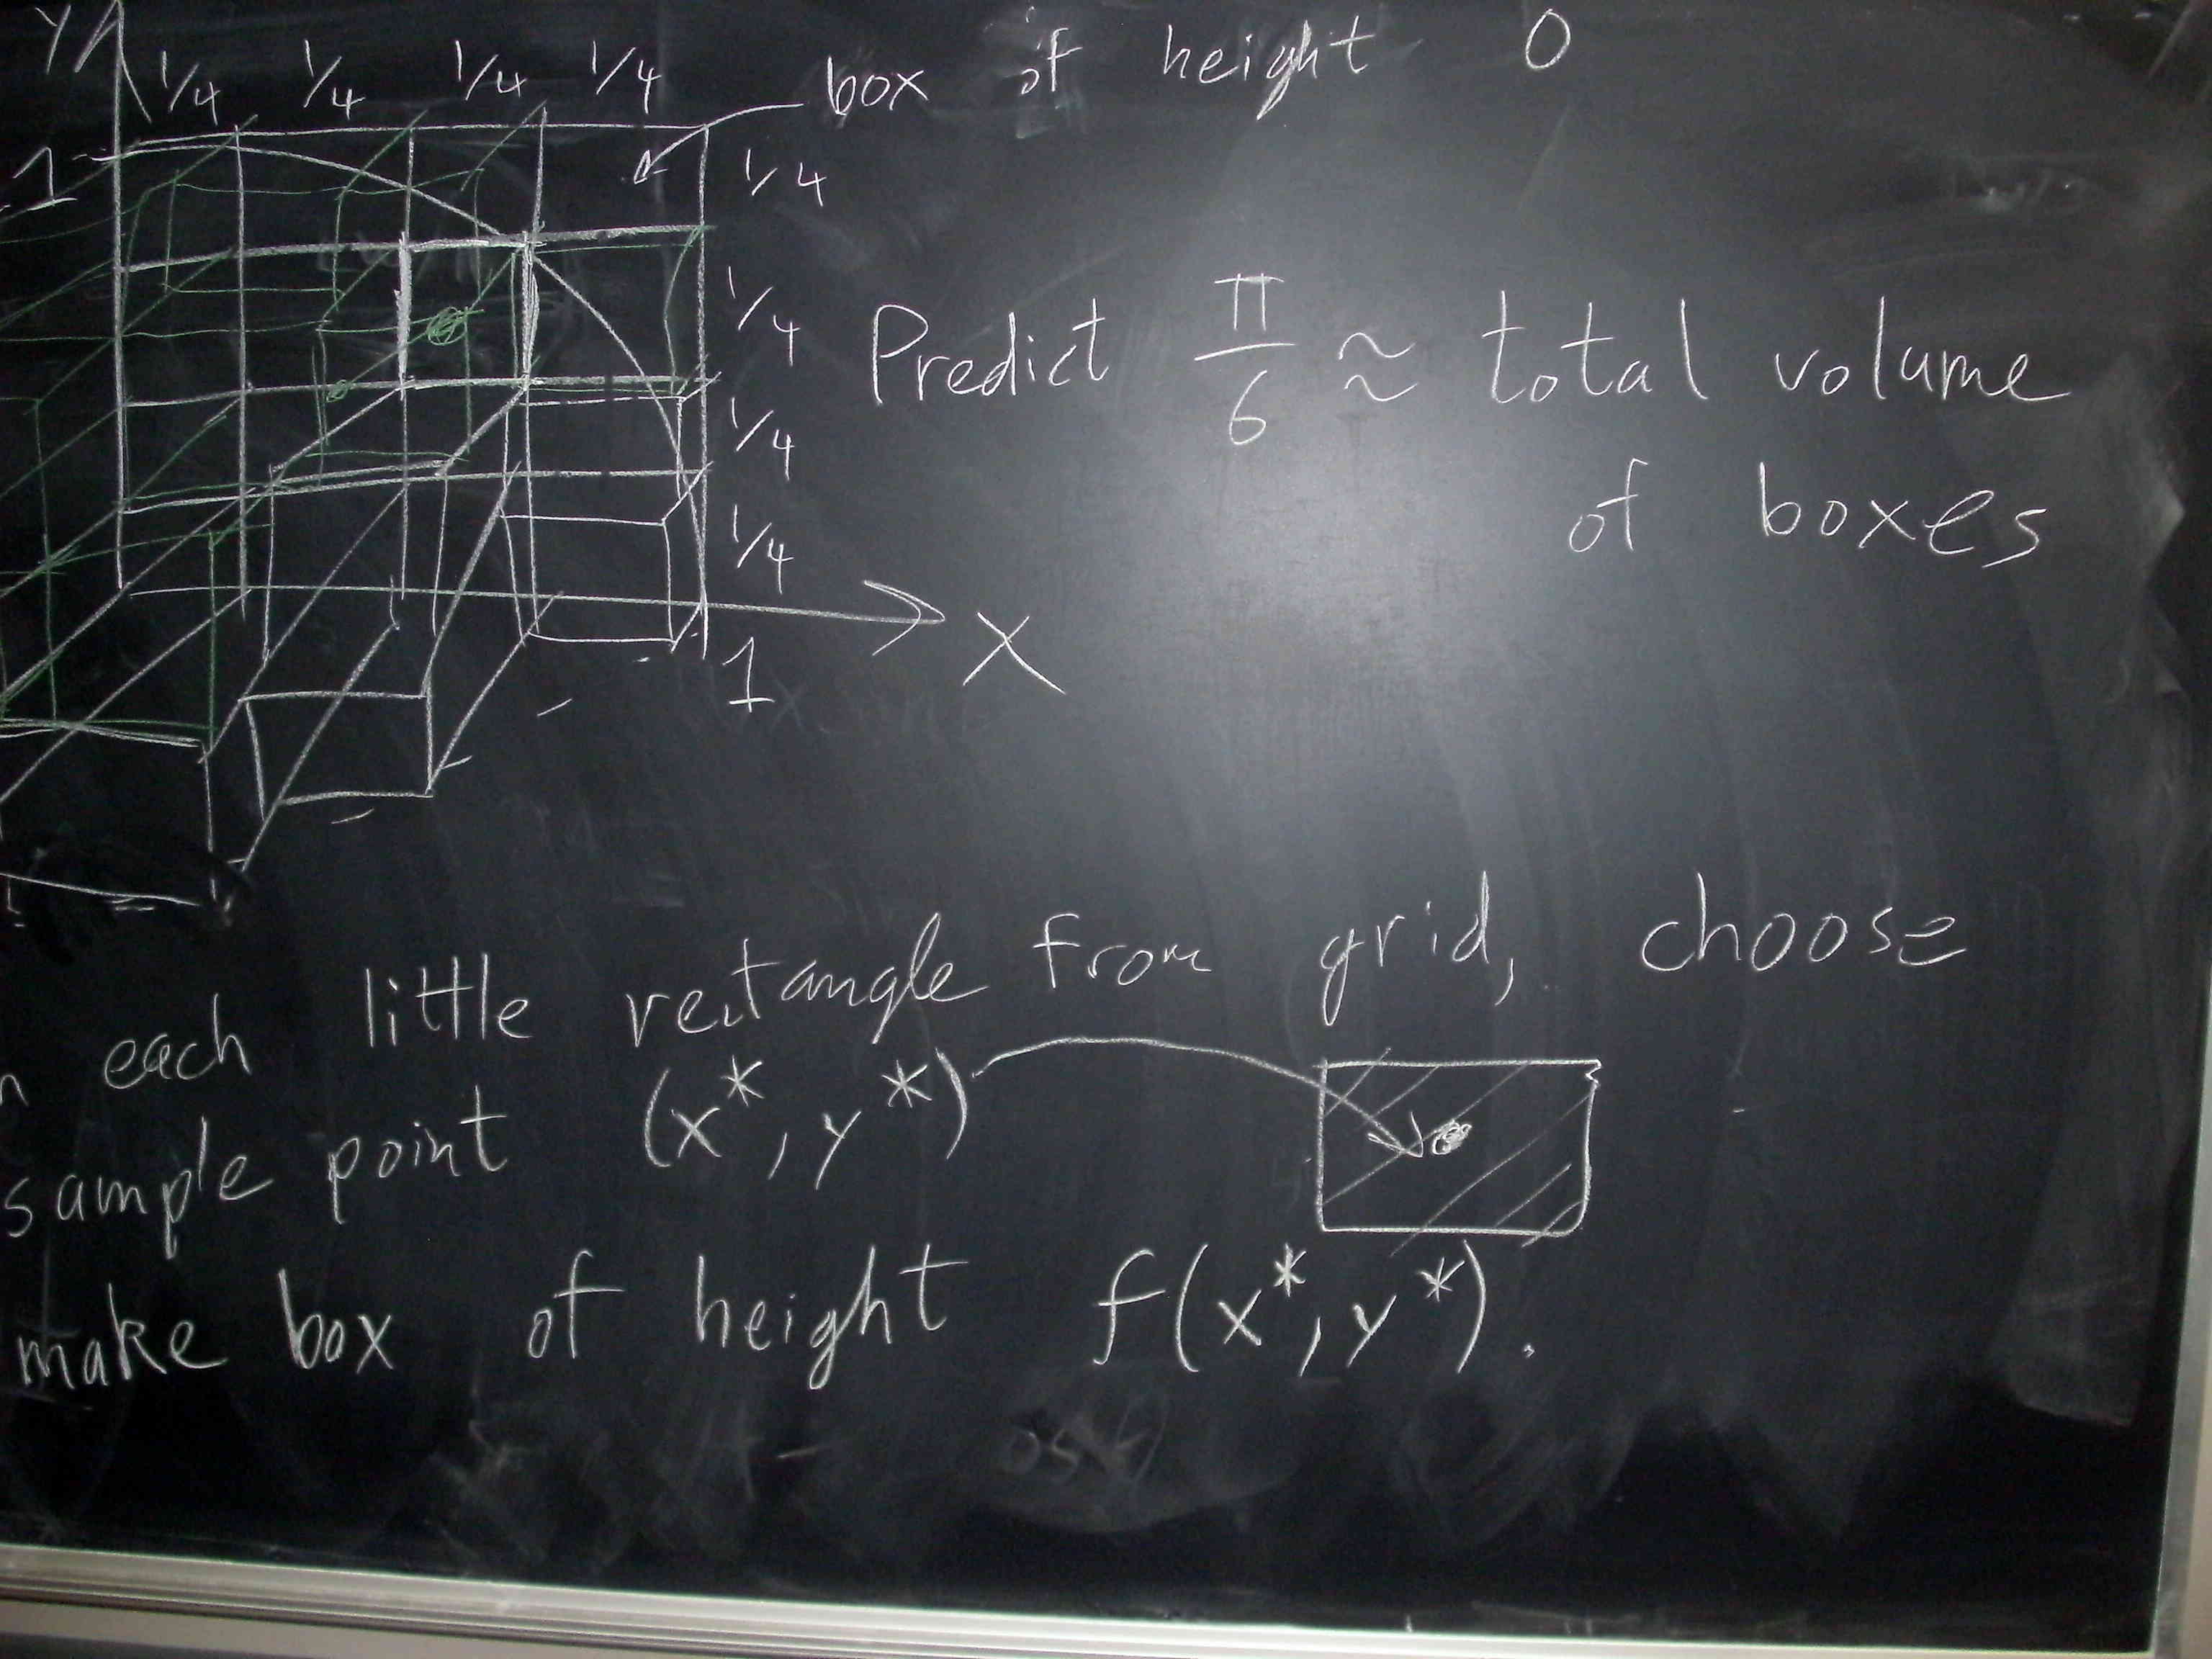 Y
1/4 1/4 1/4 1/4 box of height 0
1
1/4
1/4
1/4
1/4
Predict π/6 ≈ total volume
of boxes
X
1
each little rectangle from grid, choose
sample point (x*, y*)
make box of height f(x*, y*).